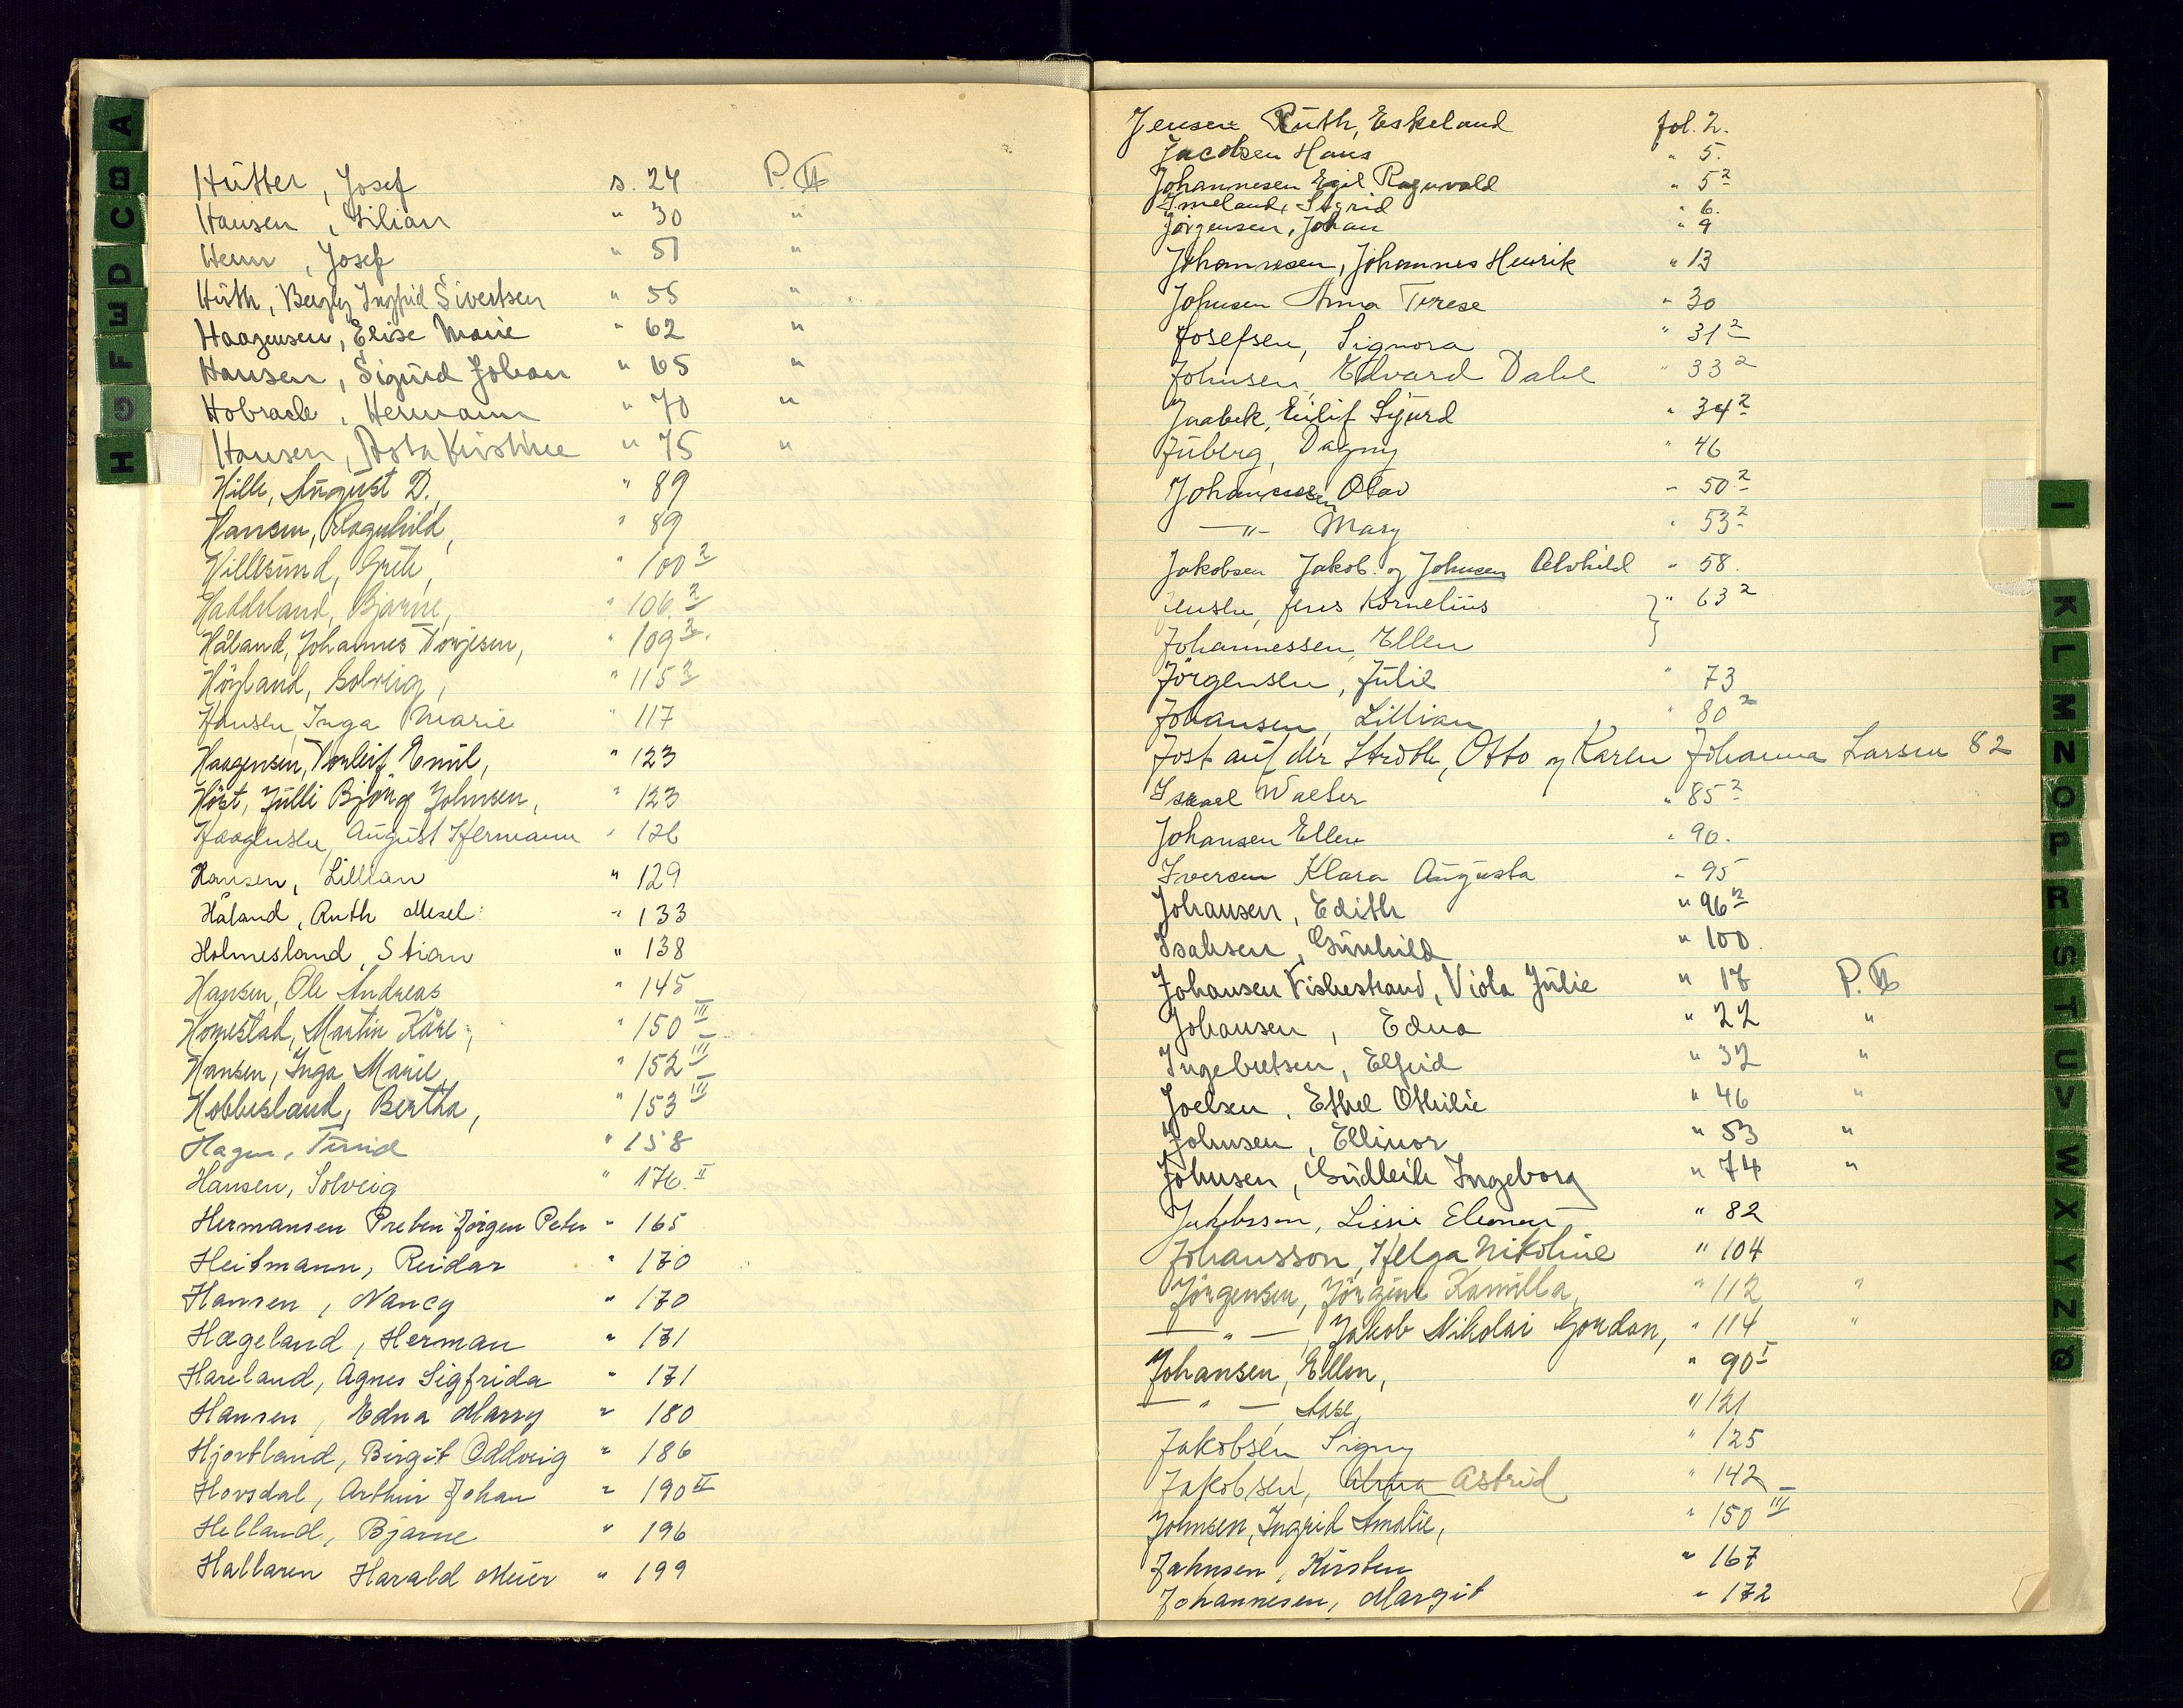 A
B
C
D
E
F
G
H
Hütter, Josef s. 24 P. II
Hansen, Lilian " 30 "
Henn, Josef " 51 "
Hüth, Ingfrid Sivertsen " 55 "
Haagensen, Elise Marie " 62 "
Hansen, Sigurd Johan " 65 "
Hobrack, Hermann " 70 "
Hansen, Asta Kirstine " 75 "
Hille, August D., " 89
Hansen, Ragnhild, " 89
Hillesund, Grete, " 100 2
Haddeland, Bjarne, " 106. 2
Håland, Johannes Torjesen, " 109 2.
Höyland, Solveig, " 115 2
Hansen, Inga Marie " 117
Haagensen, Torleif Emil, " 123
Höst, Julli Bjöng Johnsen, " 123
Haagensen, August Hermann " 126
Hansen, Lillian " 129
Håland, Ruth Mesel " 133
Holmesland, Stian " 138
Hansen, Ole Andreas " 145
Homestad, Martin Kåre, " 150 III
Hansen, Inga Marie, " 152 III
Hobbesland, Bertha, " 153 III
Hagen, Turid " 158
Hansen, Solveig " 176. II
Hermansen Preben Jörgen Peter " 165
Heitmann, Reidar " 170
Hansen, Nancy " 170
Hægeland, Herman " 171
Hareland, Agnes Sigfrida " 171
Hansen, Edna Marry " 180
Hjortland, Birgit Oddveig " 186
Horsdal, Arthur Johan " 190 II
Helland, Bjarne " 196
Hallaren Harald Meier " 199
Jensen Ruth, Eskeland fol. 2.
Jacobsen Hans " 5.
Johannesen Egil Ragnvald " 5 2
Imeland, Sigrid " 6.
Jörgensen, Johan " 9
Johannesen, Johannes Henrik " 13
Johnsen Anna Terese " 30
Josefsen, Signora " 31 2
Johnsen, Edvard Dahl " 33 2
Jaabek, Eilif Sjurd " 34 2
Juberg, Dagny " 46
Johannessen Olav " 50 2
—"— Mary " 53 2
Jakobsen Jakob. og Johnsen Alvhild " 58.
Jensen, Jens Kornelius } " 63 2
Johannessen, Ellen
Jörgensen, Julie " 73
Johansen, Lillian " 80 2
Jost auf der Stroth, Otto og Karen Johanna Larsen 82
Israel Walter " 85 2
Johansen Ellen " 90.
Iversen Klara Augusta " 95
Johansen, Edith " 96 2
Isaksen, Gunhild " 100
Johansen Fiskestrand, Viola Julie " 17 P. II
Johansen, Edna " 22 "
Ingebretsen, Elfrid " 32 "
Joelsen, Ethel Othilie " 46 "
Johnsen, Ellinor " 53 "
Johnsen, Gudleik Ingeborg " 74 "
Jakobsson, Lissie Eleonora " 82
Johansson, Helga Nikoline " 104
Jörgensen, Jörgine Kamilla, " 112 "
—"—, Jakob Nikolai Gordan, " 114 "
Johansen, Ellen, " 90 I
—"— Aase, " 121
Jakobsen Signy " 125
Jakobsen, Alma Astrid " 142
Johnsen, Ingrid Amalie, " 150 III
Jahnsen, Kirsten " 167
Johannesen, Margit " 172
I
K
L
M
N
O
P
R
S
T
U
V
W
X
Y
Z
Ø